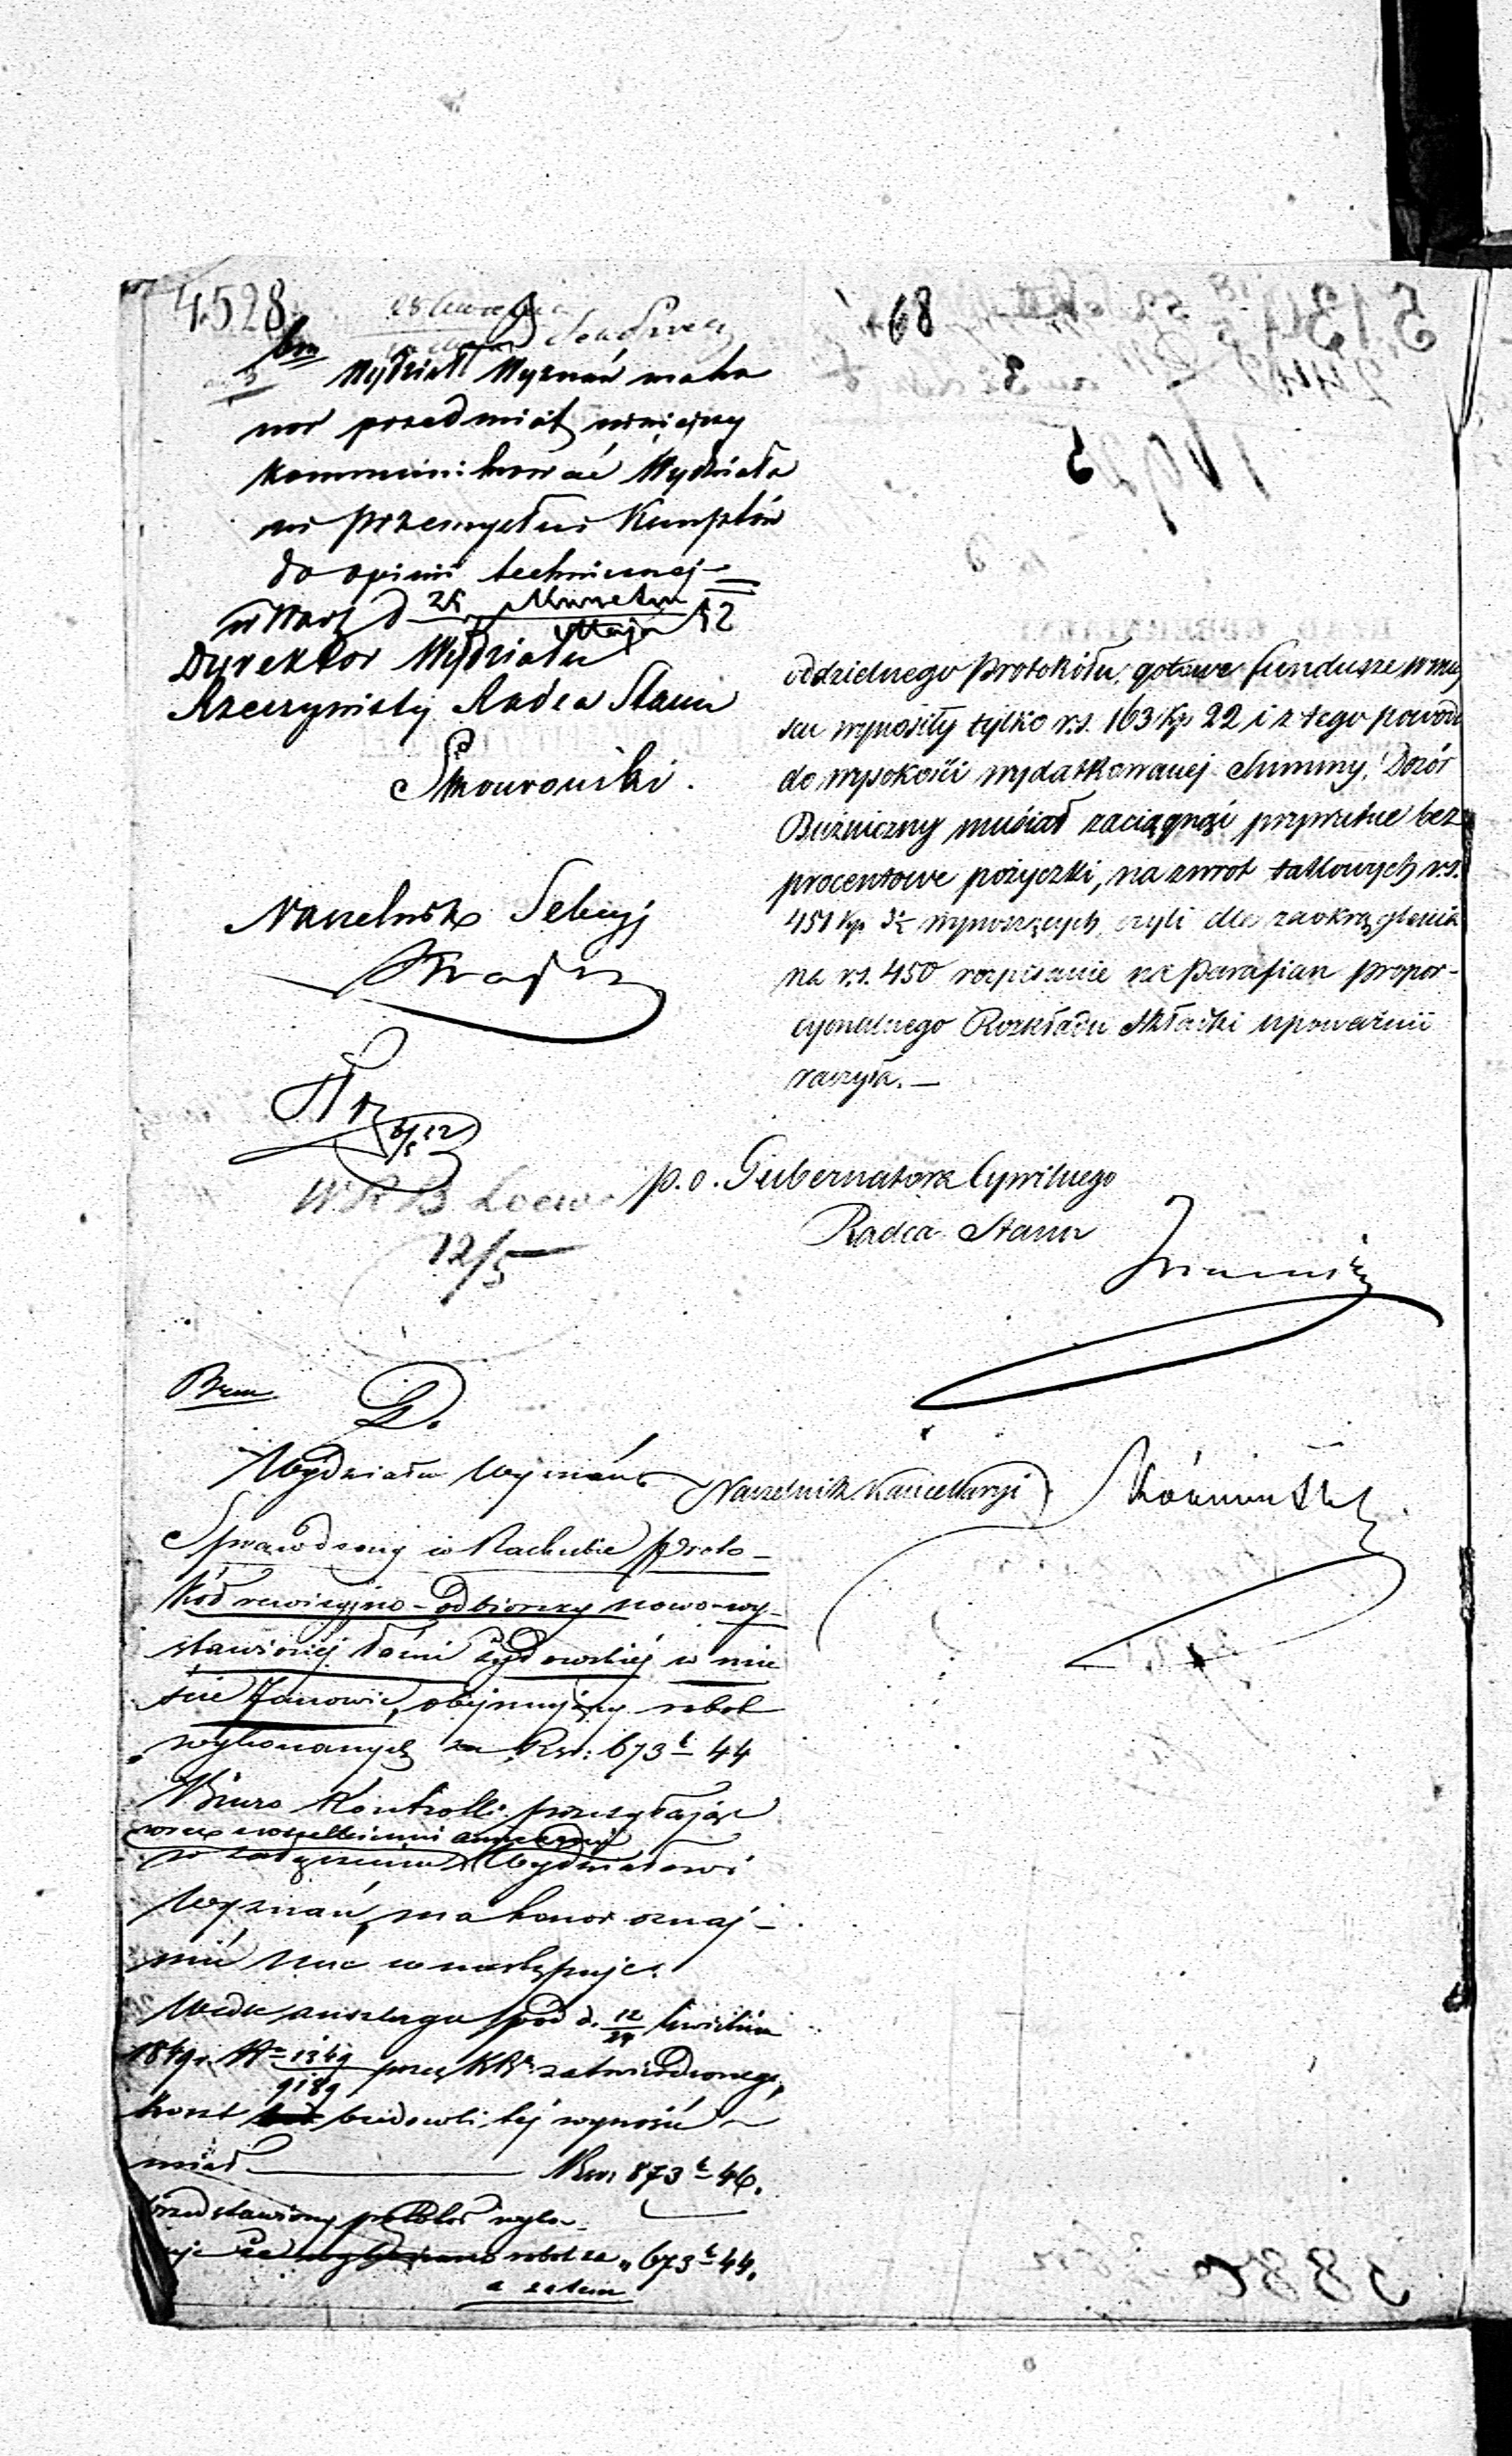 4528
68
Wydział Wyznań ma ho
nor przedmiot niniejszy
kommunikować Wydziało
wi Przemysłu i Kunsztów
do opinii technicznej
w Warz d 25 Kwietnia
Maja 52
Dyrektor Wydziału
Rzeczywisty Radca Stanu
Naczelnik Sekcyi
6/5 52
W R B Loewe
12/5
oddzielnego protokółu, gotowe fundusze w miey
scu wynosiły tylko r.s. 163 kp 22 i z tego powodu
do wysokości wydatkowanej Summy, Dozór
Bużniczny musiał zaciągnąć prywatne bez
procentowe pożyczki, na zwrot takowych r.s.
451 kp wynoszących, czyli dla zaokrąglenia
na r.s. 450 rozpisanie na parafian propor-
cyonalnego Rozkładu Składki upoważnić
raczyła. —
p. o. Gubernatora Cywilnego
Radca Stanu
Naczelnik Kancellaryi
D.
Wydziału Wyznań
Sprawdzony w Rachubie proto-
kół rewizyjno-odbiorczy nowo-wy-
stawionej łaźni żydowskiej w mie
ście Janowie, obejmujący robot
wykonanych za Rsr: 673 k 44
Biuro Kontrolli przesyłając
wraz z wszelkiemi annexami
w załączeniu Wydziałowi
Wyznań, ma honor oznaj-
mić Mu co następuje:
Wedle anszlagu pod d. 12/24 Kwietnia
1849 r. Nr 1349/9189 przez KR zatwierdzonego,
koszt budowli tej wynosić
miał Rsr: 873 k 46.
Przedstawiony protokół wyka-
zuje robot za „ 673 k 44.
a zatem